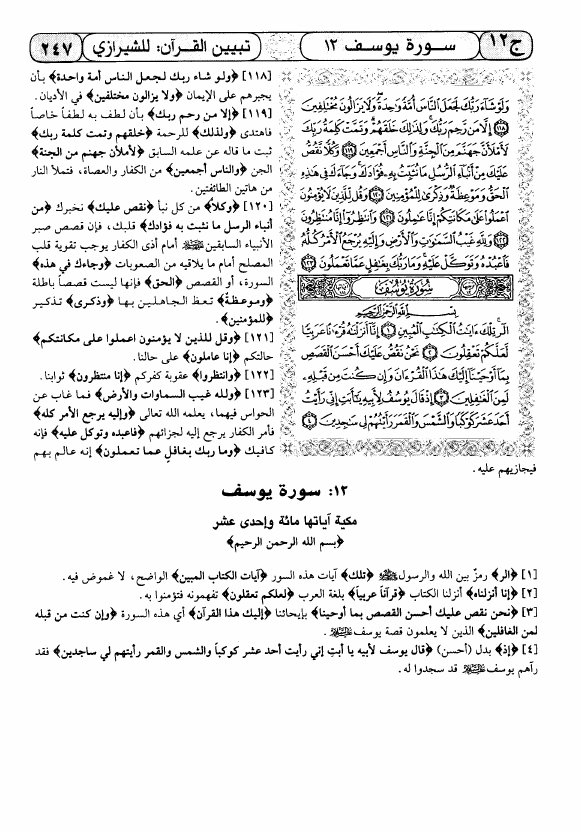 ج١٢
سورة يوسف ١٢
تبيين القرآن: للشيرازي
٢٤٧
وَلَوْ شَآءَ رَبُّكَ لَجَعَلَ ٱلنَّاسَ أُمَّةً وَٰحِدَةً وَلَا يَزَالُونَ مُخْتَلِفِينَ
١١٨ إِلَّا مَن رَّحِمَ رَبُّكَ وَلِذَٰلِكَ خَلَقَهُمْ وَتَمَّتْ كَلِمَةُ رَبِّكَ
لَأَمْلَأَنَّ جَهَنَّمَ مِنَ ٱلْجِنَّةِ وَٱلنَّاسِ أَجْمَعِينَ ١١٩ وَكُلًّا نَّقُصُّ
عَلَيْكَ مِنْ أَنۢبَآءِ ٱلرُّسُلِ مَا نُثَبِّتُ بِهِۦ فُؤَادَكَ وَجَآءَكَ فِى هَٰذِهِ
ٱلْحَقُّ وَمَوْعِظَةٌ وَذِكْرَىٰ لِلْمُؤْمِنِينَ ١٢٠ وَقُل لِّلَّذِينَ لَا يُؤْمِنُونَ
ٱعْمَلُوا۟ عَلَىٰ مَكَانَتِكُمْ إِنَّا عَٰمِلُونَ ١٢١ وَٱنتَظِرُوٓا۟ إِنَّا مُنتَظِرُونَ
١٢٢ وَلِلَّهِ غَيْبُ ٱلسَّمَٰوَٰتِ وَٱلْأَرْضِ وَإِلَيْهِ يُرْجَعُ ٱلْأَمْرُ كُلُّهُۥ
فَٱعْبُدْهُ وَتَوَكَّلْ عَلَيْهِ وَمَا رَبُّكَ بِغَٰفِلٍ عَمَّا تَعْمَلُونَ ١٢٣
سُورَةُ يُوسُفَ
بِسْمِ ٱللَّهِ ٱلرَّحْمَٰنِ ٱلرَّحِيمِ
الٓر تِلْكَ ءَايَٰتُ ٱلْكِتَٰبِ ٱلْمُبِينِ ١ إِنَّآ أَنزَلْنَٰهُ قُرْءَٰنًا عَرَبِيًّا
لَّعَلَّكُمْ تَعْقِلُونَ ٢ نَحْنُ نَقُصُّ عَلَيْكَ أَحْسَنَ ٱلْقَصَصِ
بِمَآ أَوْحَيْنَآ إِلَيْكَ هَٰذَا ٱلْقُرْءَانَ وَإِن كُنتَ مِن قَبْلِهِۦ
لَمِنَ ٱلْغَٰفِلِينَ ٣ إِذْ قَالَ يُوسُفُ لِأَبِيهِ يَٰٓأَبَتِ إِنِّى رَأَيْتُ
أَحَدَ عَشَرَ كَوْكَبًا وَٱلشَّمْسَ وَٱلْقَمَرَ رَأَيْتُهُمْ لِى سَٰجِدِينَ ٤
[١١٨] ﴿ولو شاء ربك لجعل الناس أمة واحدة﴾ بأن
يجبرهم على الإيمان ﴿ولا يزالون مختلفين﴾ في الأديان.
[١١٩] ﴿إلا من رحم ربك﴾ بأن لطف به لطفاً خاصاً
فاهتدى ﴿ولذلك﴾ للرحمة ﴿خلقهم وتمت كلمة ربك﴾
ثبت ما قاله عن علمه السابق ﴿لأملأن جهنم من الجنة﴾
الجن ﴿والناس أجمعين﴾ من الكفار والعصاة، فتملأ النار
من هاتين الطائفتين.
[١٢٠] ﴿وكلاً﴾ من كل نبأ ﴿نقص عليك﴾ نخبرك ﴿من
أنباء الرسل ما نثبت به فؤادك﴾ قلبك، فإن قصص صبر
الأنبياء السابقين أمام أذى الكفار يوجب تقوية قلب
المصلح أمام ما يلاقيه من الصعوبات ﴿وجاءك في هذه﴾
السورة، أو القصص ﴿الحق﴾ فإنها ليست قصصاً باطلة
﴿وموعظة﴾ تعظ الجاهلين بها ﴿وذكرى﴾ تذكير
﴿للمؤمنين﴾.
[١٢١] ﴿وقل للذين لا يؤمنون اعملوا على مكانتكم﴾
حالتكم ﴿إنا عاملون﴾ على حالنا.
[١٢٢] ﴿وانتظروا﴾ عقوبة كفركم ﴿إنا منتظرون﴾ ثوابنا.
[١٢٣] ﴿ولله غيب السماوات والأرض﴾ فما غاب عن
الحواس فيهما، يعلمه الله تعالى ﴿وإليه يرجع الأمر كله﴾
فأمر الكفار يرجع إليه لجزائهم ﴿فاعبده وتوكل عليه﴾ فإنه
كافيك ﴿وما ربك بغافل عما تعملون﴾ إنه عالم بهم
فيجازيهم عليه.
١٢: سورة يوسف
مكية آياتها مائة وإحدى عشر
﴿بسم الله الرحمن الرحيم﴾
[١] ﴿الر﴾ رمز بين الله والرسول ﷺ ﴿تلك﴾ آيات هذه السور ﴿آيات الكتاب المبين﴾ الواضح، لا غموض فيه.
[٢] ﴿إنا أنزلناه﴾ أنزلنا الكتاب ﴿قرآناً عربياً﴾ بلغة العرب ﴿لعلكم تعقلون﴾ تفهمونه فتؤمنوا به.
[٣] ﴿نحن نقص عليك أحسن القصص بما أوحينا﴾ بإيحائنا ﴿إليك هذا القرآن﴾ أي هذه السورة ﴿وإن كنت من قبله
لمن الغافلين﴾ الذين لا يعلمون قصة يوسف.
[٤] ﴿إذ﴾ بدل (أحسن) ﴿قال يوسف لأبيه يا أبت إني رأيت أحد عشر كوكباً والشمس والقمر رأيتهم لي ساجدين﴾ فقد
رآهم يوسف قد سجدوا له.